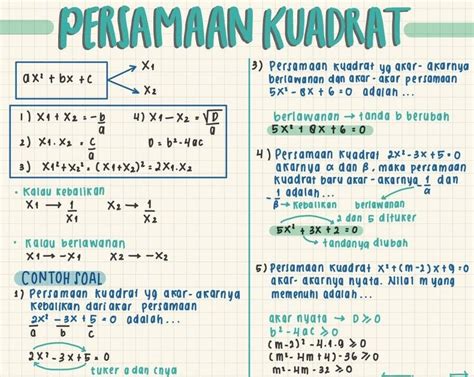 PERSAMAAN KUADRAT
ax² + bx + c
x₁
x₂
1) x₁ + x₂ = -b/a
4) x₁ - x₂ = √D/a
2) x₁ . x₂ = c/a
D = b² - 4ac
3) x₁² + x₂² = (x₁ + x₂)² = 2x₁ . x₂
• Kalau kebalikan
x₁ → 1/x₁ x₂ → 1/x₂
• Kalau berlawanan
x₁ → -x₁ x₂ → -x₂
CONTOH SOAL
1) Persamaan kuadrat yg akar-akarnya
kebalikan dari akar persamaan
2x² - 3x + 5 = 0 adalah ...
a b c
2x² - 3x + 5 = 0
tuker a dan cnya
3) Persamaan kuadrat yg akar-akarnya
berlawanan dgn akar-akar persamaan
5x² - 8x + 6 = 0 adalah ...
berlawanan → tanda b berubah
5x² + 8x + 6 = 0
4) Persamaan kuadrat 2x² - 3x + 5 = 0
akarnya α dan β, maka persamaan
kuadrat baru akar-akarnya -1/α dan
-1/β adalah ...
→ kebalikan berlawanan
2 dan 5 dituker
5x² + 3x + 2 = 0
tandanya diubah
5) Persamaan kuadrat x² + (m-2)x + 9 = 0
akar-akarnya nyata. Nilai m yang
memenuhi adalah ...
akar nyata → D ≥ 0
b² - 4ac ≥ 0
(m-2)² - 4.1.9 ≥ 0
(m² - 4m + 4) - 36 ≥ 0
m² - 4m - 32 ≥ 0